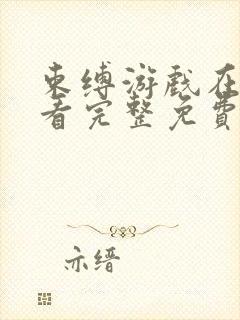 束缚游戏在
看完整免费
亦缙